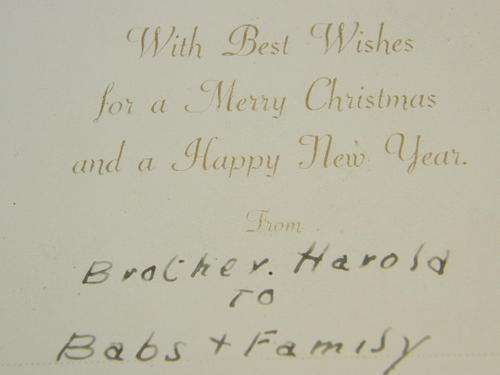 With Best Wishes
for a Merry Christmas
and a Happy New Year.
From
Brother. Harold
TO
Babs + Family